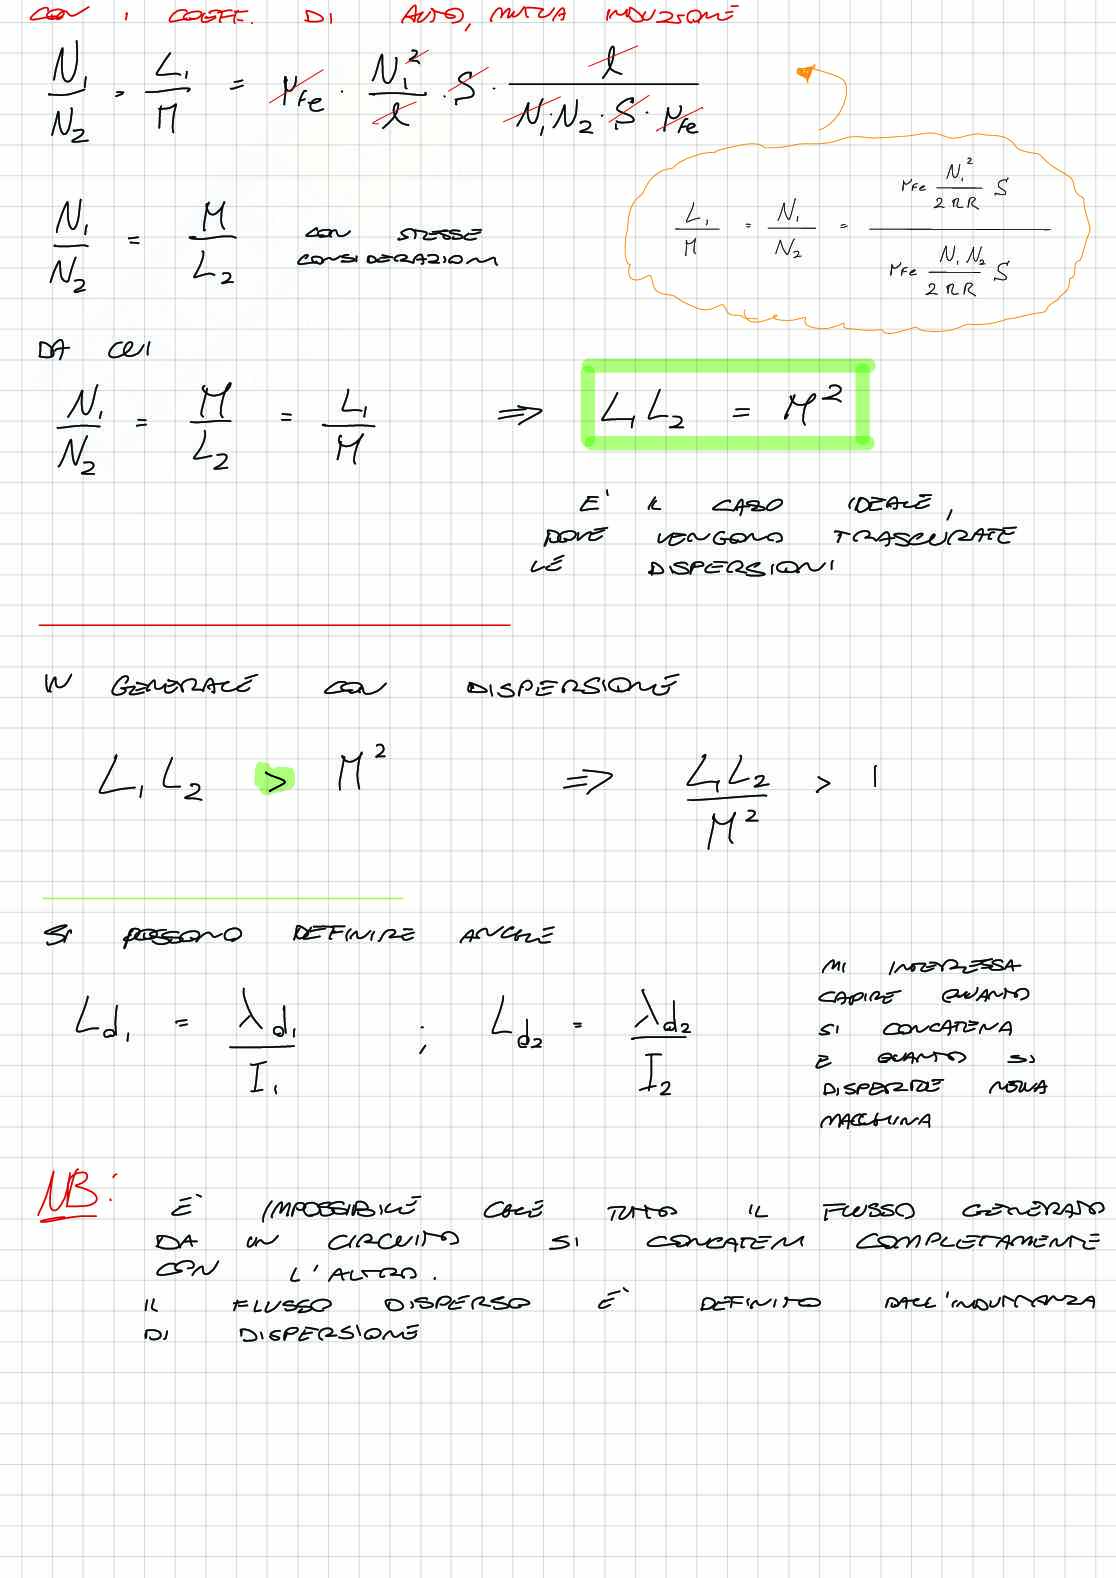 CON I COEFF. DI AUTO, MUTUA INDUZIONE
N₁/N₂ = L₁/M = μFe · N₁²/l · S · l/(N₁·N₂·S·μFe)
L₁/M = N₁/N₂ = (μFe N₁²/(2πR) S)/(μFe N₁N₂/(2πR) S)
N₁/N₂ = M/L₂ CON STESSE
CONSIDERAZIONI
DA CUI
N₁/N₂ = M/L₂ = L₁/M ⇒ L₁L₂ = M²
E' IL CASO IDEALE,
DOVE VENGONO TRASCURATE
LE DISPERSIONI
IN GENERALE CON DISPERSIONE
L₁L₂ > M² ⇒ L₁L₂/M² > 1
SI POSSONO DEFINIRE ANCHE
Ld₁ = λd₁/I₁ ; Ld₂ = λd₂/I₂
MI INTERESSA
CAPIRE QUANTO
SI CONCATENA
E QUANTO SI
DISPERDE NELLA
MACCHINA
NB: E' IMPOSSIBILE CHE TUTTO IL FLUSSO GENERATO
DA UN CIRCUITO SI CONCATENI COMPLETAMENTE
CON L'ALTRO.
IL FLUSSO DISPERSO E' DEFINITO DALL'INDUTTANZA
DI DISPERSIONE